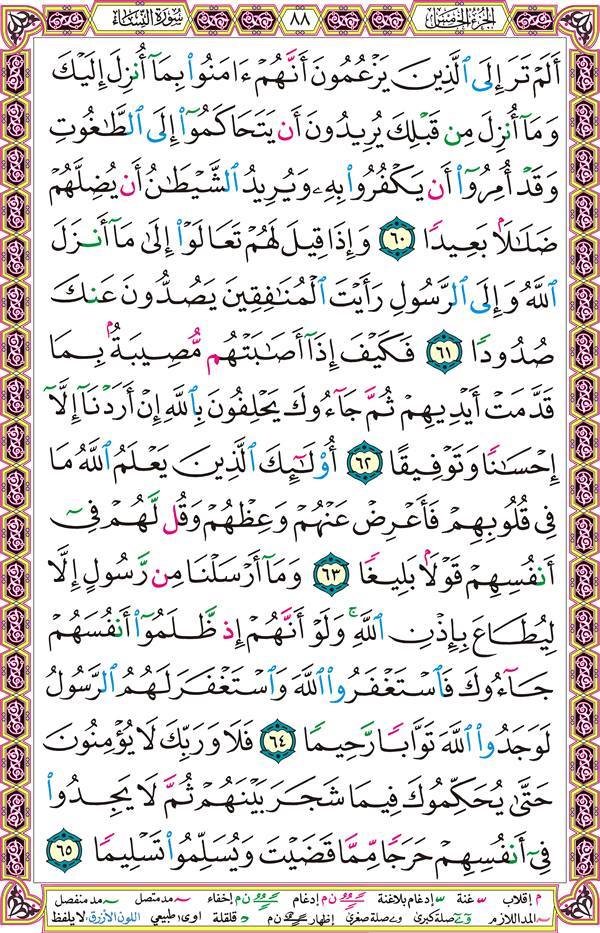 سورة النساء ٨٨ الجزء الخامس
أَلَمْ تَرَ إِلَى ٱلَّذِينَ يَزْعُمُونَ أَنَّهُمْ ءَامَنُوا۟ بِمَآ أُنزِلَ إِلَيْكَ
وَمَآ أُنزِلَ مِن قَبْلِكَ يُرِيدُونَ أَن يَتَحَاكَمُوٓا۟ إِلَى ٱلطَّٰغُوتِ
وَقَدْ أُمِرُوٓا۟ أَن يَكْفُرُوا۟ بِهِۦ وَيُرِيدُ ٱلشَّيْطَٰنُ أَن يُضِلَّهُمْ
ضَلَٰلًۢا بَعِيدًا ٦٠ وَإِذَا قِيلَ لَهُمْ تَعَالَوْا۟ إِلَىٰ مَآ أَنزَلَ
ٱللَّهُ وَإِلَى ٱلرَّسُولِ رَأَيْتَ ٱلْمُنَٰفِقِينَ يَصُدُّونَ عَنكَ
صُدُودًا ٦١ فَكَيْفَ إِذَآ أَصَٰبَتْهُم مُّصِيبَةٌۢ بِمَا
قَدَّمَتْ أَيْدِيهِمْ ثُمَّ جَآءُوكَ يَحْلِفُونَ بِٱللَّهِ إِنْ أَرَدْنَآ إِلَّآ
إِحْسَٰنًا وَتَوْفِيقًا ٦٢ أُو۟لَٰٓئِكَ ٱلَّذِينَ يَعْلَمُ ٱللَّهُ مَا
فِى قُلُوبِهِمْ فَأَعْرِضْ عَنْهُمْ وَعِظْهُمْ وَقُل لَّهُمْ فِىٓ
أَنفُسِهِمْ قَوْلًۢا بَلِيغًا ٦٣ وَمَآ أَرْسَلْنَا مِن رَّسُولٍ إِلَّا
لِيُطَاعَ بِإِذْنِ ٱللَّهِ ۚ وَلَوْ أَنَّهُمْ إِذ ظَّلَمُوٓا۟ أَنفُسَهُمْ
جَآءُوكَ فَٱسْتَغْفَرُوا۟ ٱللَّهَ وَٱسْتَغْفَرَ لَهُمُ ٱلرَّسُولُ
لَوَجَدُوا۟ ٱللَّهَ تَوَّابًا رَّحِيمًا ٦٤ فَلَا وَرَبِّكَ لَا يُؤْمِنُونَ
حَتَّىٰ يُحَكِّمُوكَ فِيمَا شَجَرَ بَيْنَهُمْ ثُمَّ لَا يَجِدُوا۟
فِىٓ أَنفُسِهِمْ حَرَجًا مِّمَّا قَضَيْتَ وَيُسَلِّمُوا۟ تَسْلِيمًا ٦٥
م إقلاب غنة إدغام بلاغنة ن م إدغام ن م إخفاء مد متصل مد منفصل
المد اللازم صلة كبرى صلة صغرى إظهار ن م قلقلة اوى طبيعي اللون الأزرق لا يلفظ